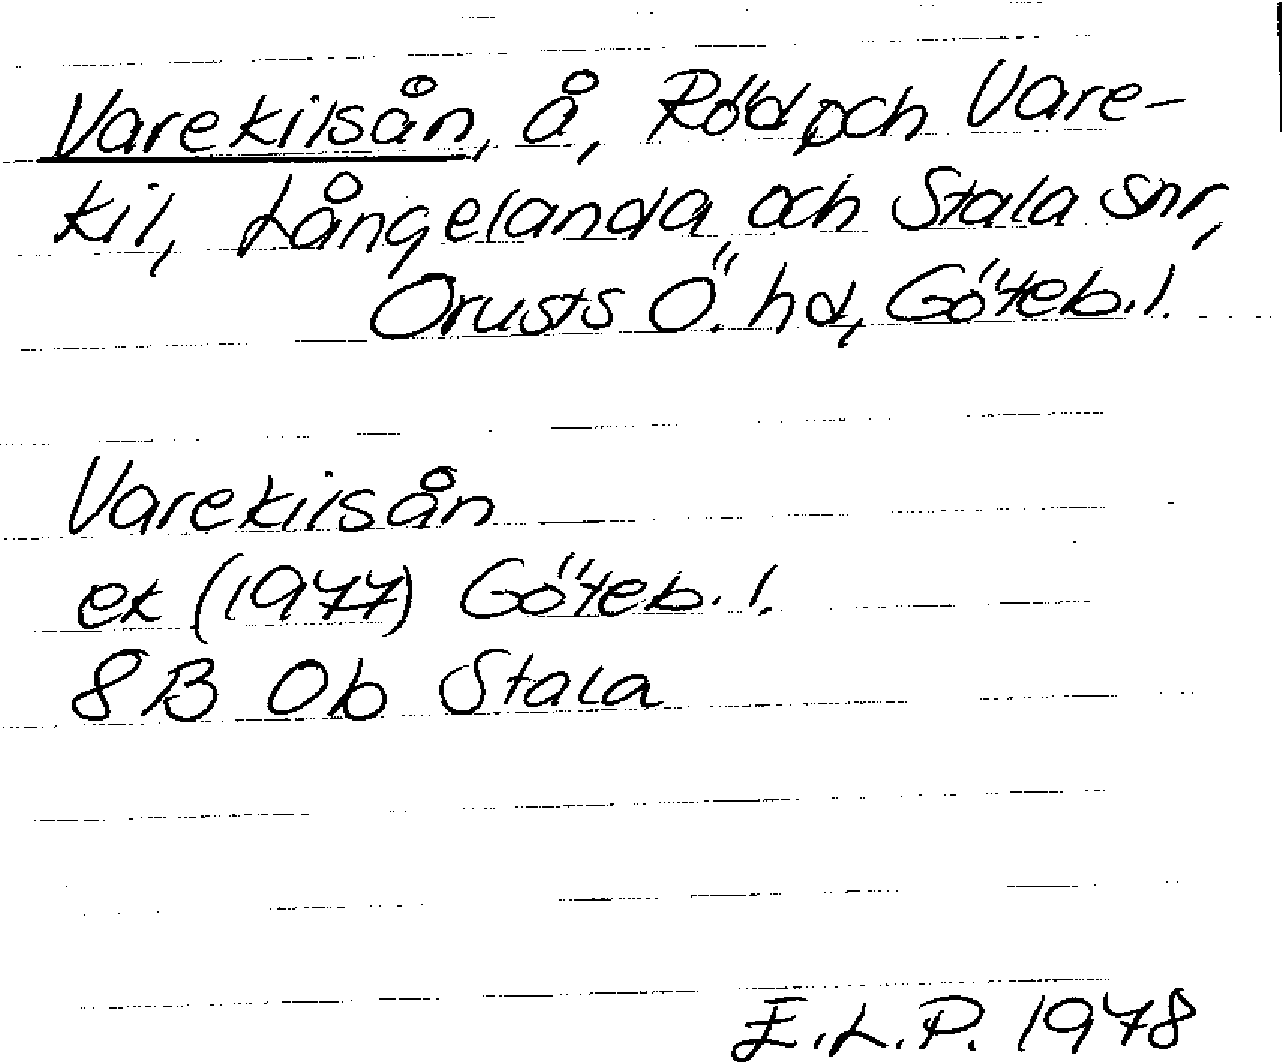 Varekilsån, å, Röd och Vare-
kil, Långelanda och Stala snr,
Orusts Ö. hd, Göteb. l.
Varekilsån
ek (1977) Göteb. l.
8B 0b Stala
E.L.P. 1978